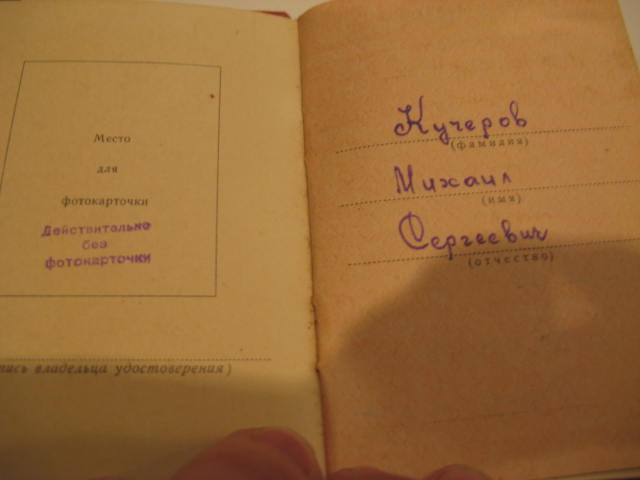 Место
для
фотокарточки
Действительно
без
фотокарточки
пись владельца удостоверения)
Кучеров
(фамилия)
Михаил
(имя)
Сергеевич
(отчество)